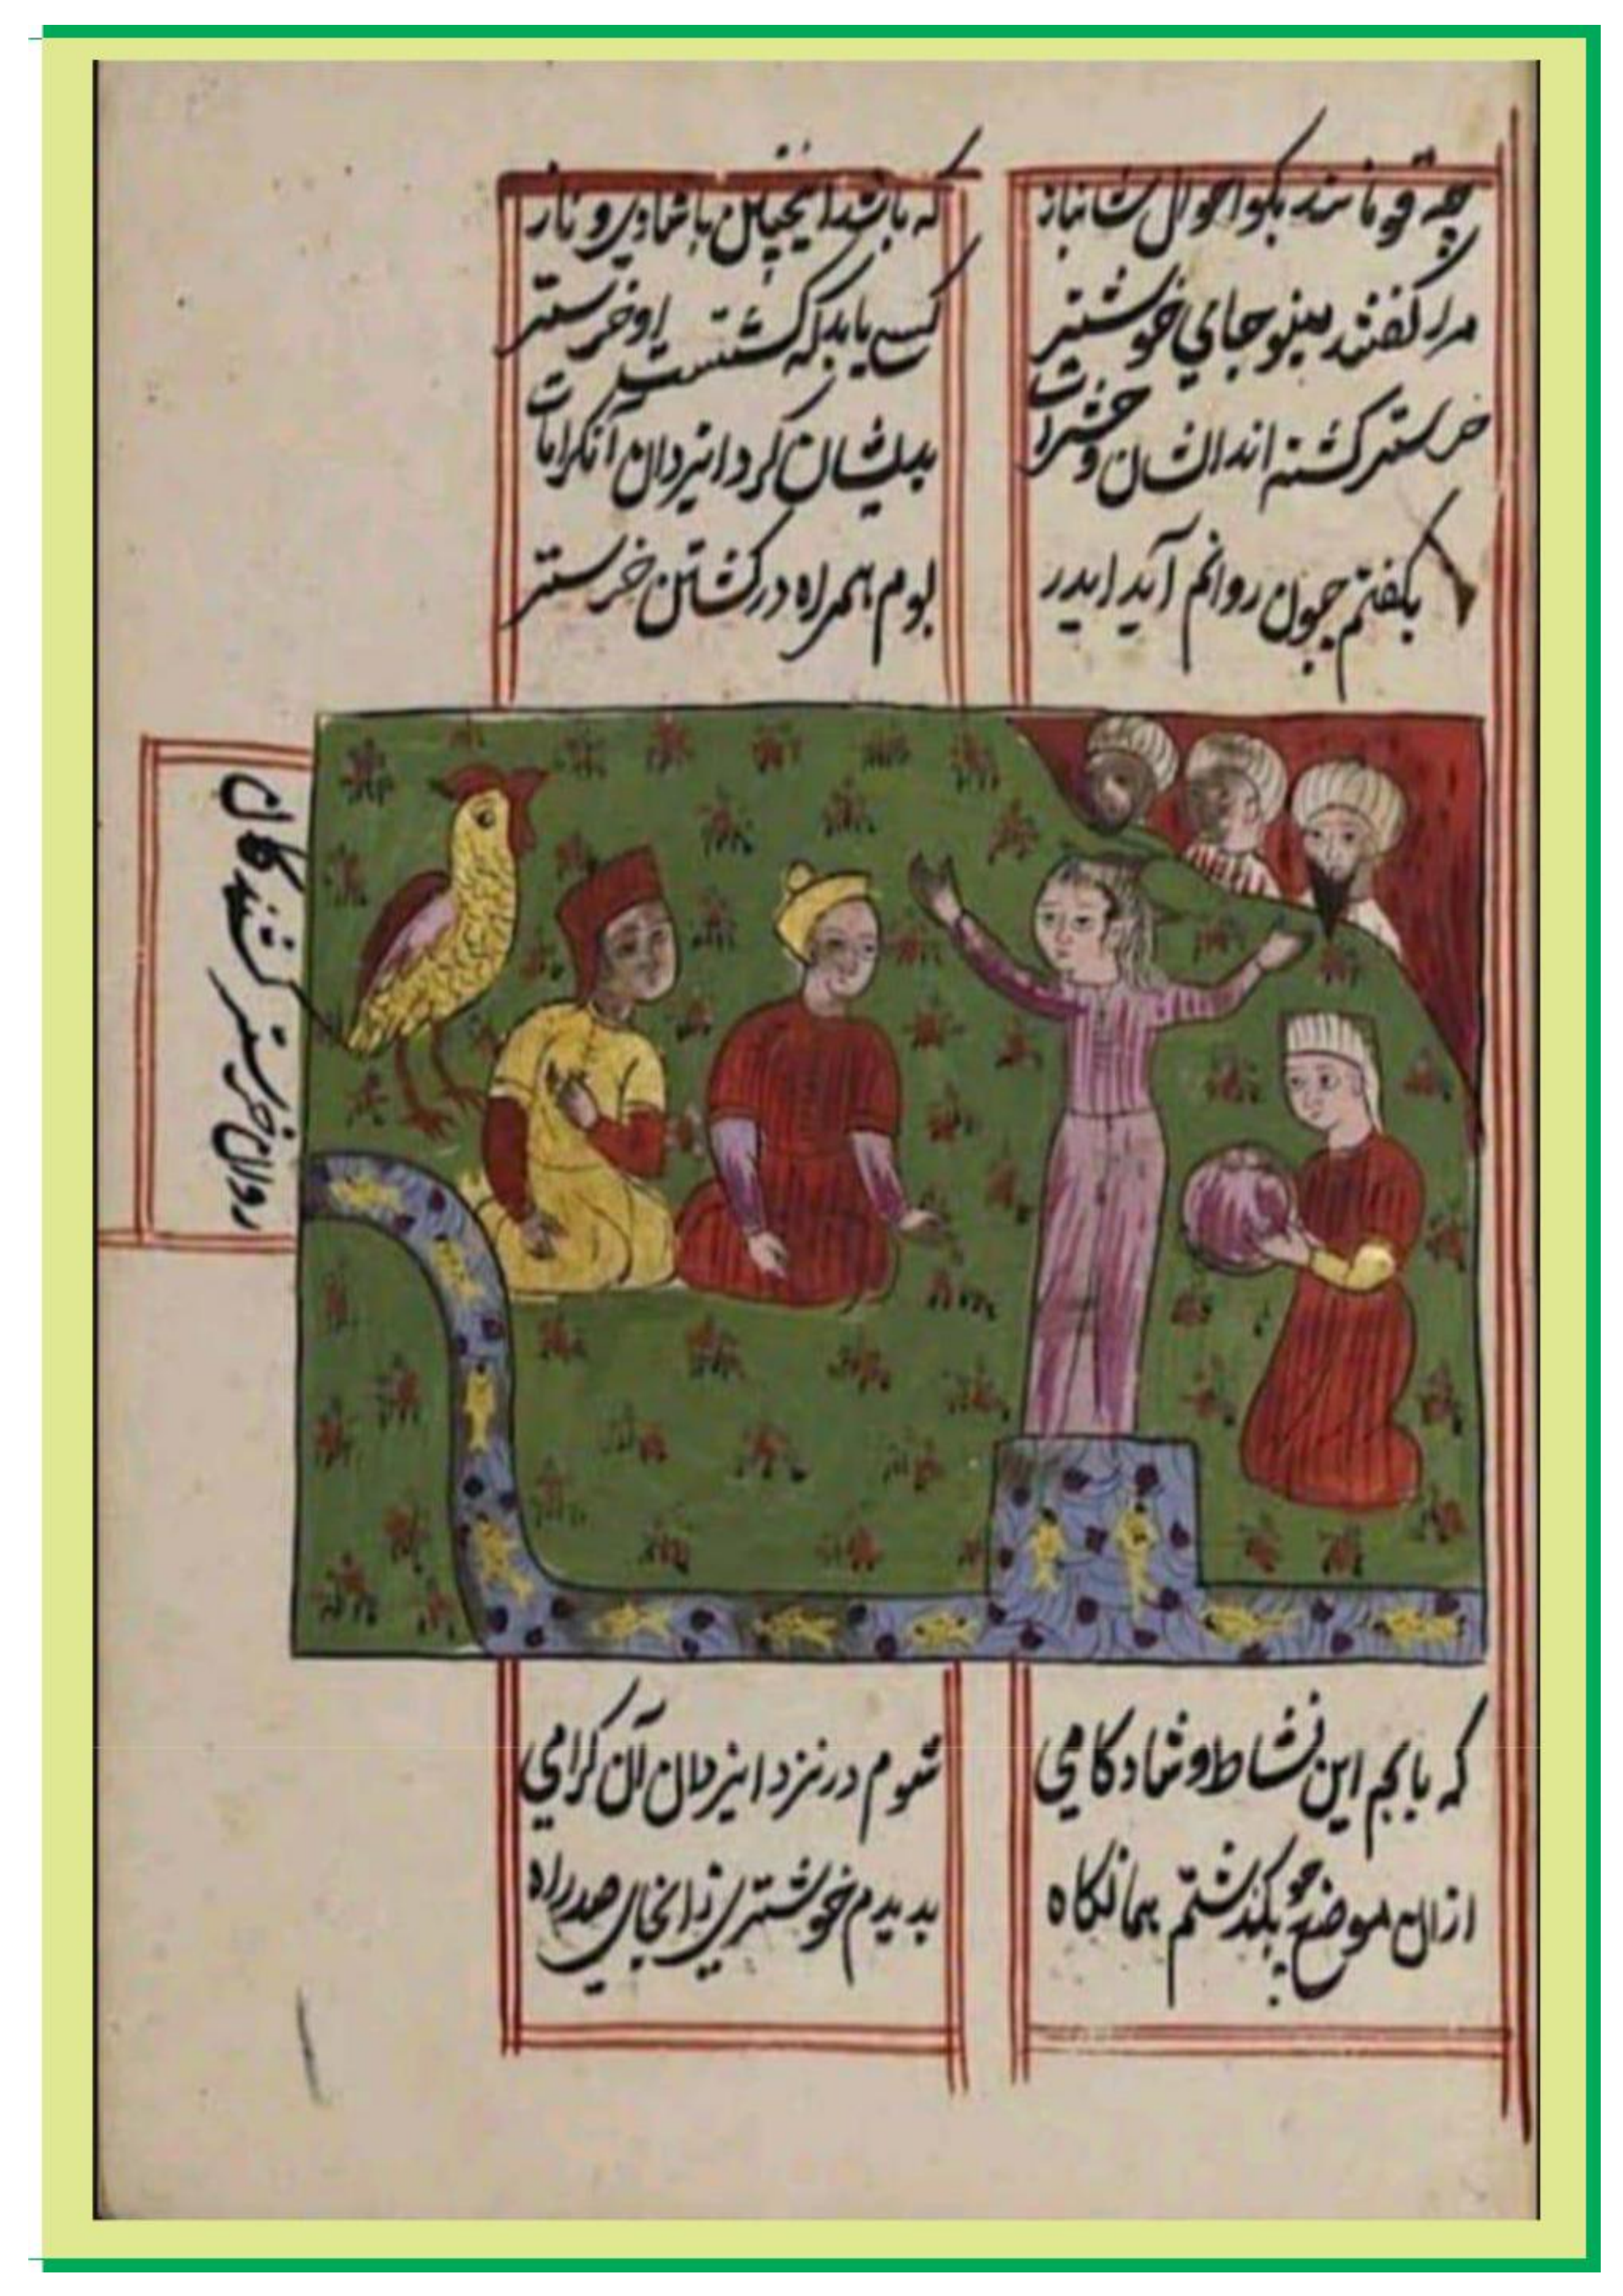 چه قومانند بکو احوال شانباز که باشد اینچنین باشادی و ناز
مرا کفتند مینو جای خوشتر کسی یابد که کشتست او خرستر
خرستر کشته اند ایشان و حشرات بدیشان کرد ایزدان آنکرامات
بکفتم چون روانم آید ایدر بوم همراه در کشتن خرستر
روان خرستر کشندکان
که یابم این نشاط و شادکامی شوم در نزد ایزدان آن کرامی
ازان موضع چو بکذشتم همانکاه بدیدم خوشتری زانجای در راه